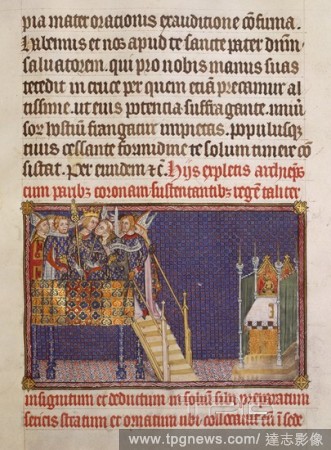 pia mater orationis exauditione cōsuma.
Habemus et nos apud te sancte pater dnm̄
saluatorem. qui pro nobis manus suas
tetedit in cruce per quem etiā precamur al
tissime. ut eius potencia suffragante. uniūⁱ
sor hostiū frangatur impietas. populusqʒ
tuus cessante formidine te solum timere cō
discat. Per eundem ⁊c̄. Hijs expletis archiep̄s
cum paribʒ coronam sustentantibʒ regem taliter
insignitum et deductum in soliū sibi preparatum
sericis stratum et ornatum ubi collocauit eū ī sede
www.tpgnews.com / 達志影像